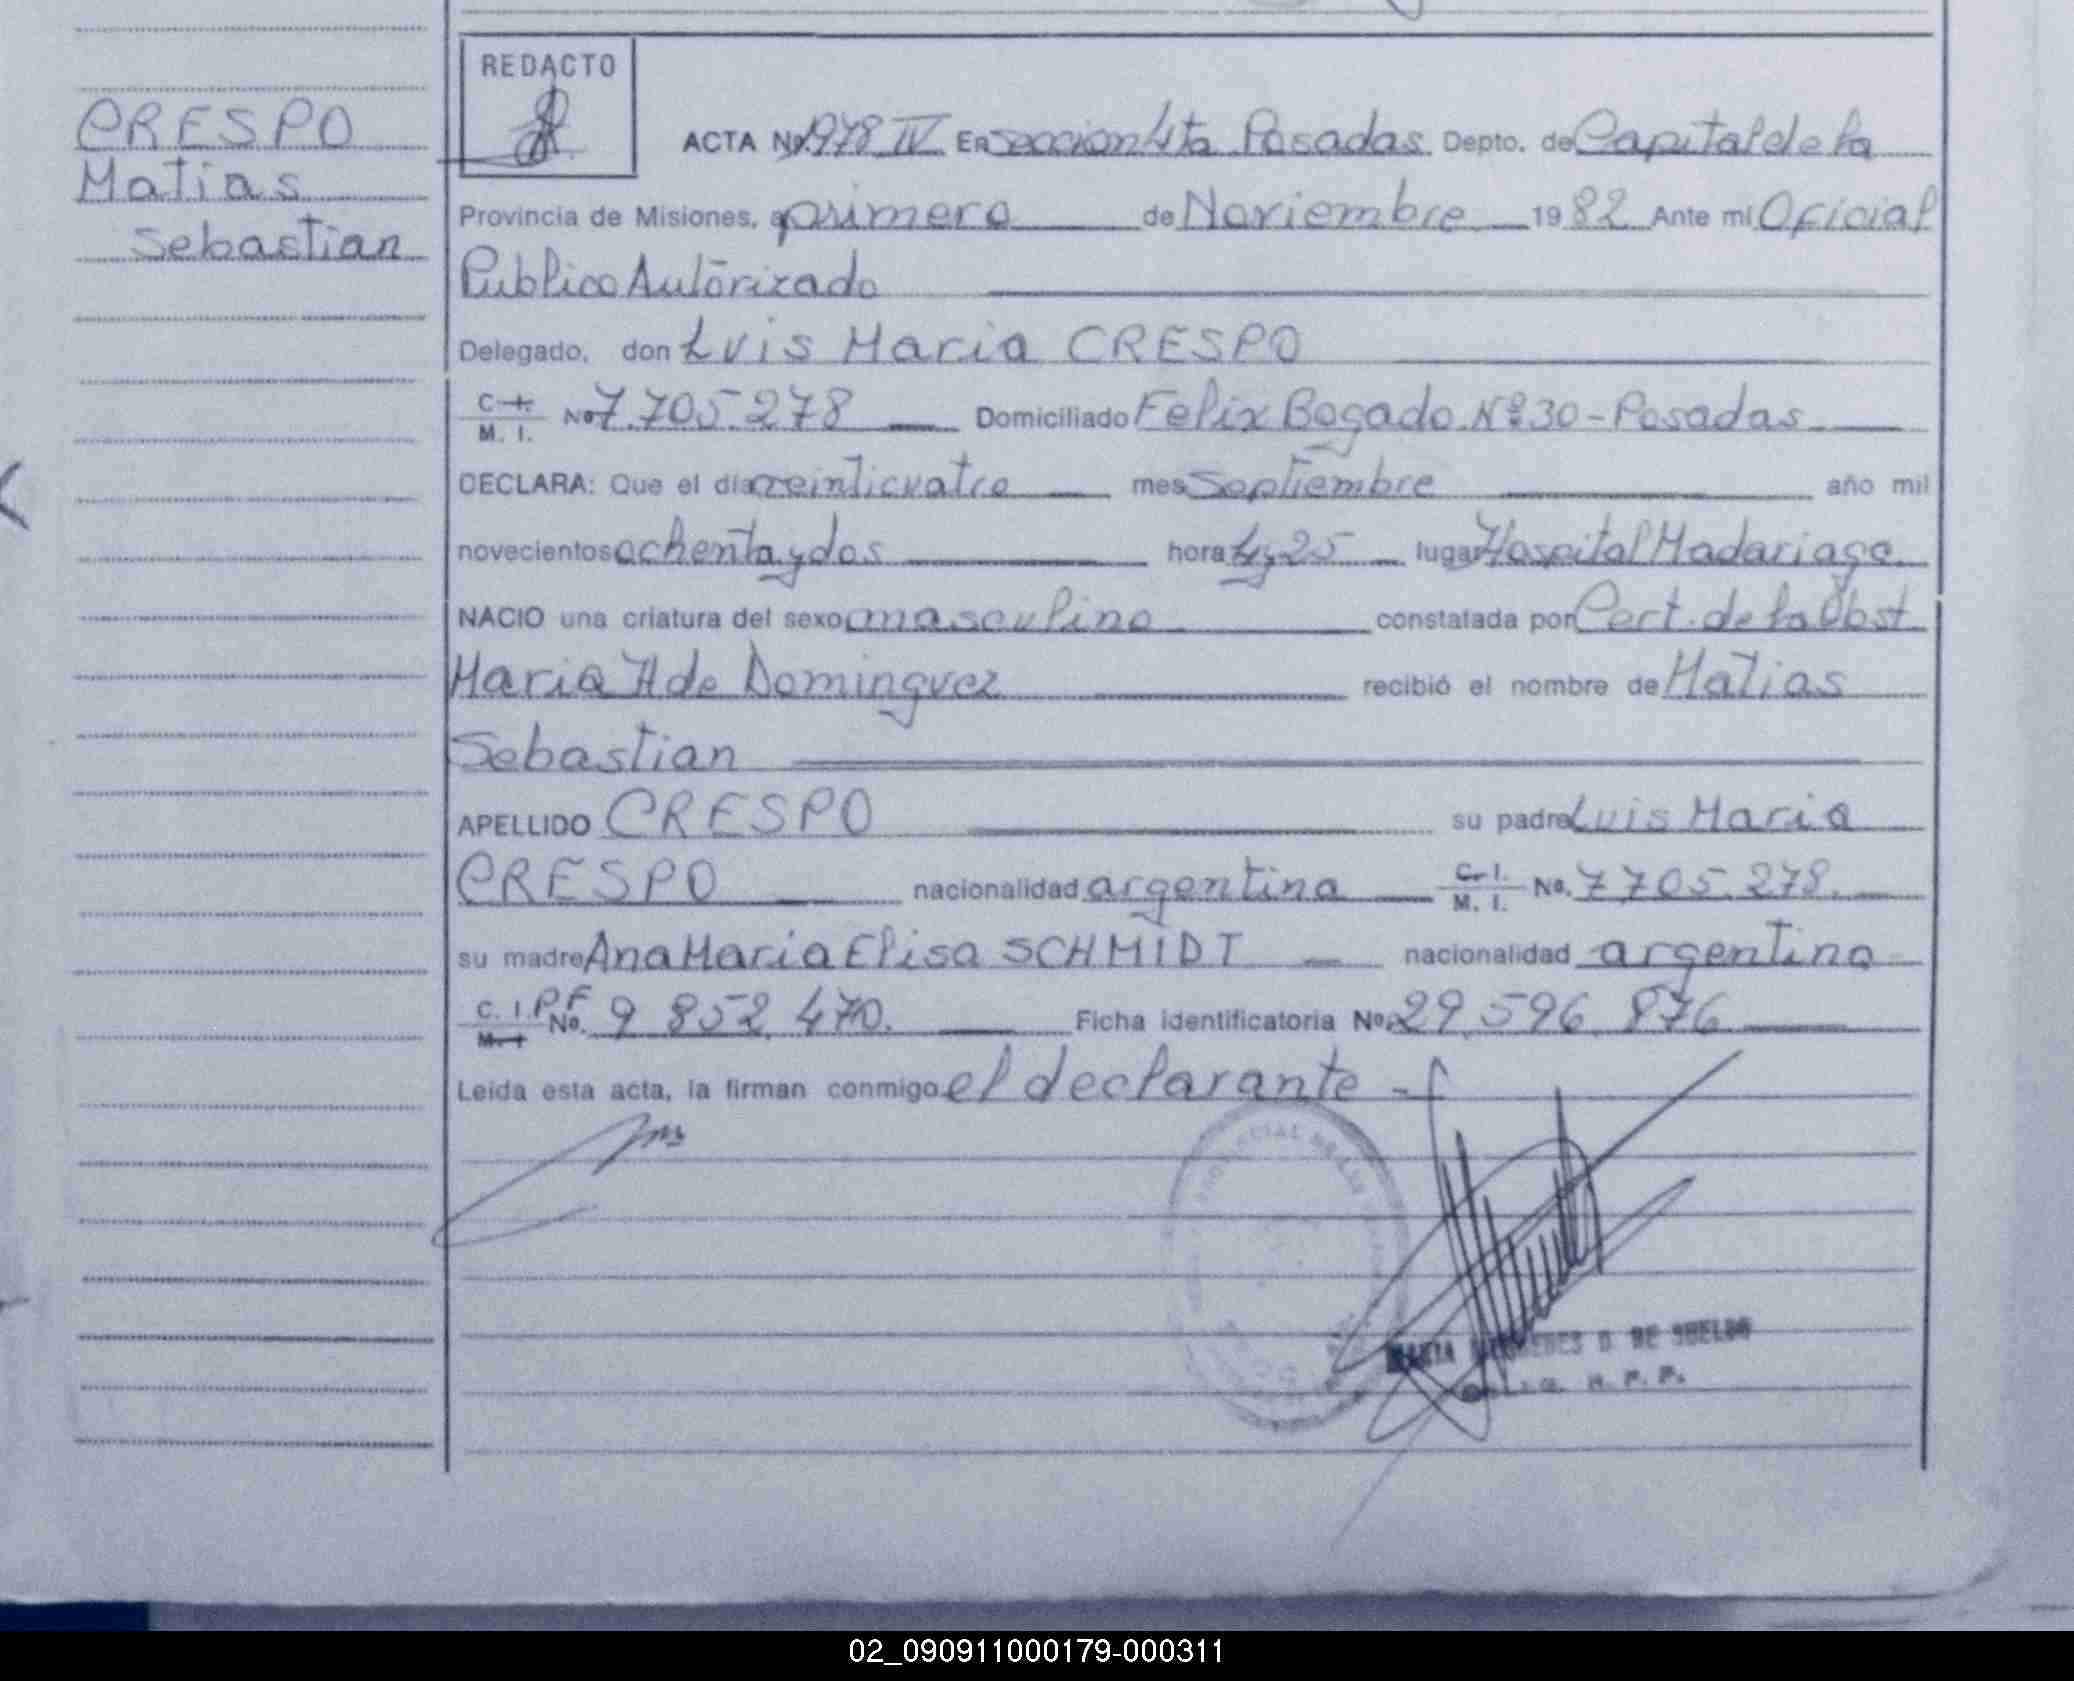 CRESPO
Matias
Sebastian
REDACTO
ACTA Nº 1978 IV En seccion 4ta Posadas Depto. de Capital de la
Provincia de Misiones, a primero de Noviembre 1982 Ante mi Oficial
Publico Autorizado
Delegado, don Luis Maria CRESPO
C. I. M. I. Nº 7.705.278 Domiciliado Felix Bogado Nº 30 - Posadas
DECLARA: Que el día veinticuatro mes Septiembre año mil
novecientos ochenta y dos hora 4,25 lugar Hospital Madariaga
NACIO una criatura del sexo masculino constatada por Cert. de la Obst
Maria H de Dominguez recibió el nombre de Matias
Sebastian
APELLIDO CRESPO su padre Luis Maria
CRESPO nacionalidad argentina C. I. M. I. No. 7 705.278.
su madre Ana Maria Elisa SCHMIDT nacionalidad argentina
C. I. P F M. I. No. 9 852 470. Ficha identificatoria Nº 29.596.876
Leída esta acta, la firman conmigo el declarante -
DE SUELDO
R. P. P.
02_090911000179-000311